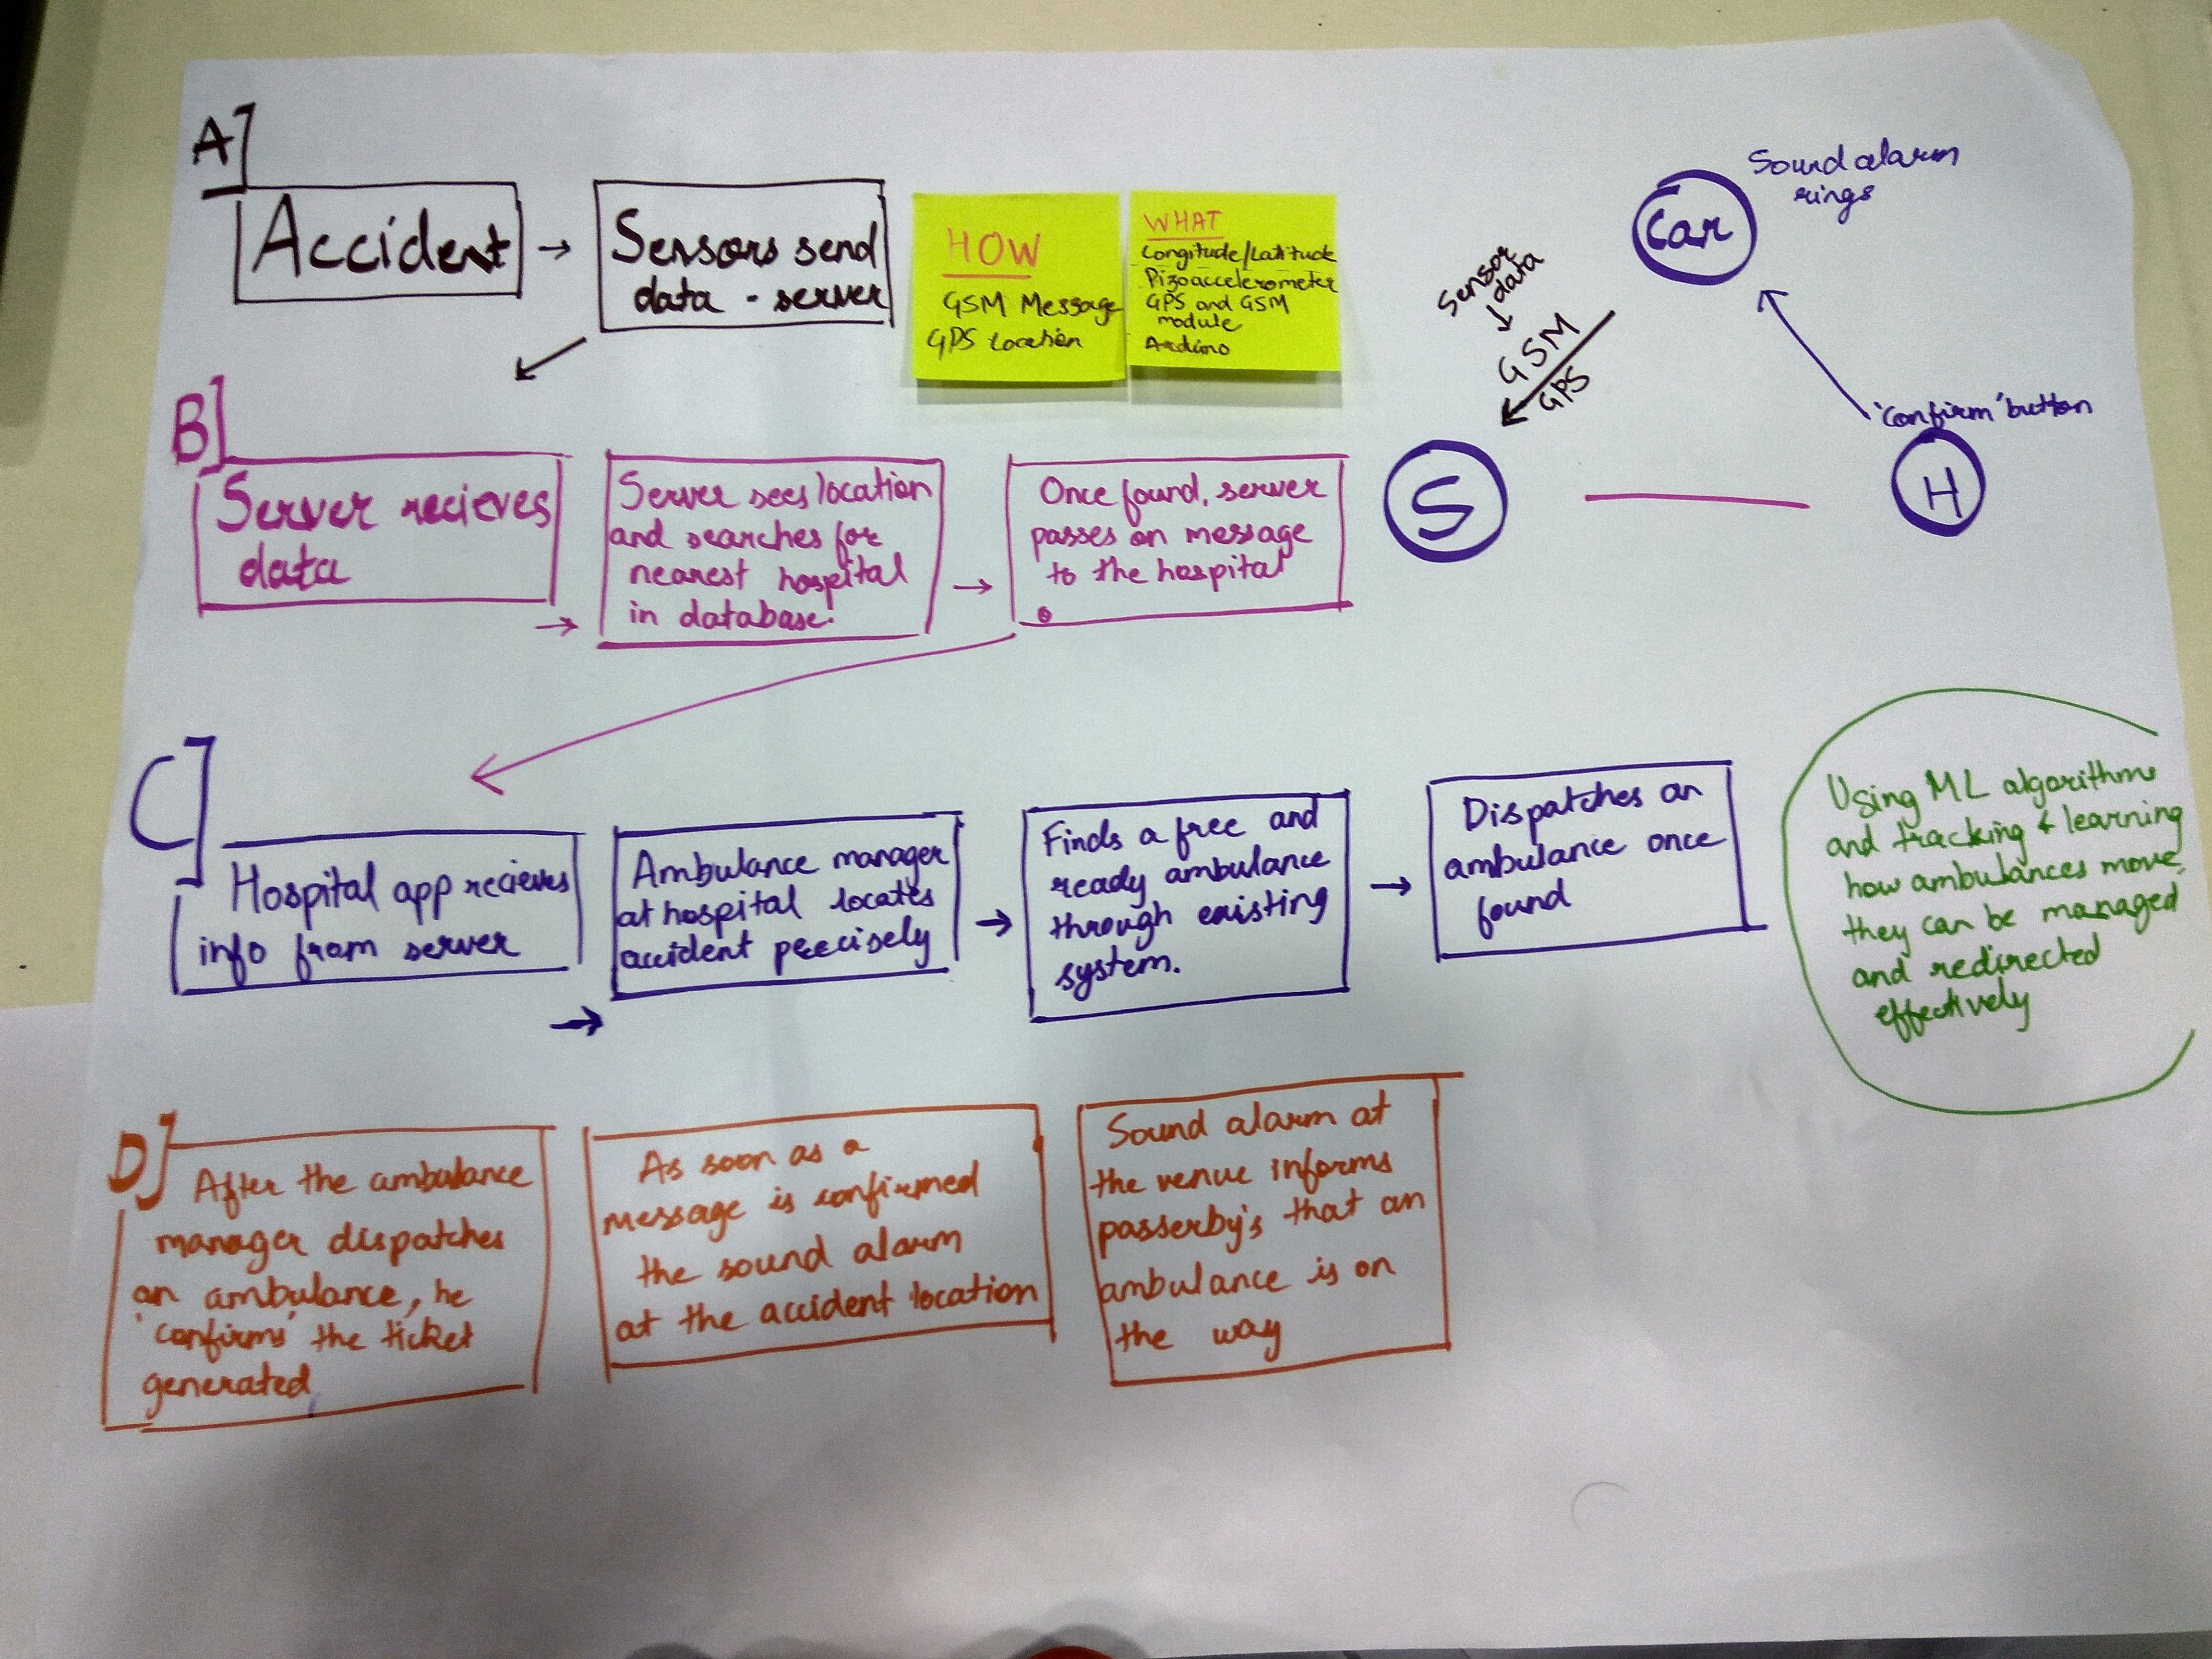 A]
Accident
Sensors send
data - server
HOW
GSM Message
GPS Location
WHAT
Longitude/Latitude
Pizoaccelerometer
GPS and GSM
module
Arduino
Car
Sound alarm
rings
Sensor
data
GSM
GPS
'Confirm' button
S
H
B]
Server recieves
data
Server sees location
and searches for
nearest hospital
in database.
Once found, server
passes on message
to the hospital
C]
Hospital app recieves
info from server
Ambulance manager
at hospital locates
accident precisely
Finds a free and
ready ambulance
through existing
system.
Dispatches an
ambulance once
found
Using ML algorithms
and tracking & learning
how ambulances move,
they can be managed
and redirected
effectively
D]
After the ambulance
manager dispatches
an ambulance, he
'confirms' the ticket
generated
As soon as a
message is confirmed
the sound alarm
at the accident location
Sound alarm at
the venue informs
passerby's that an
ambulance is on
the way